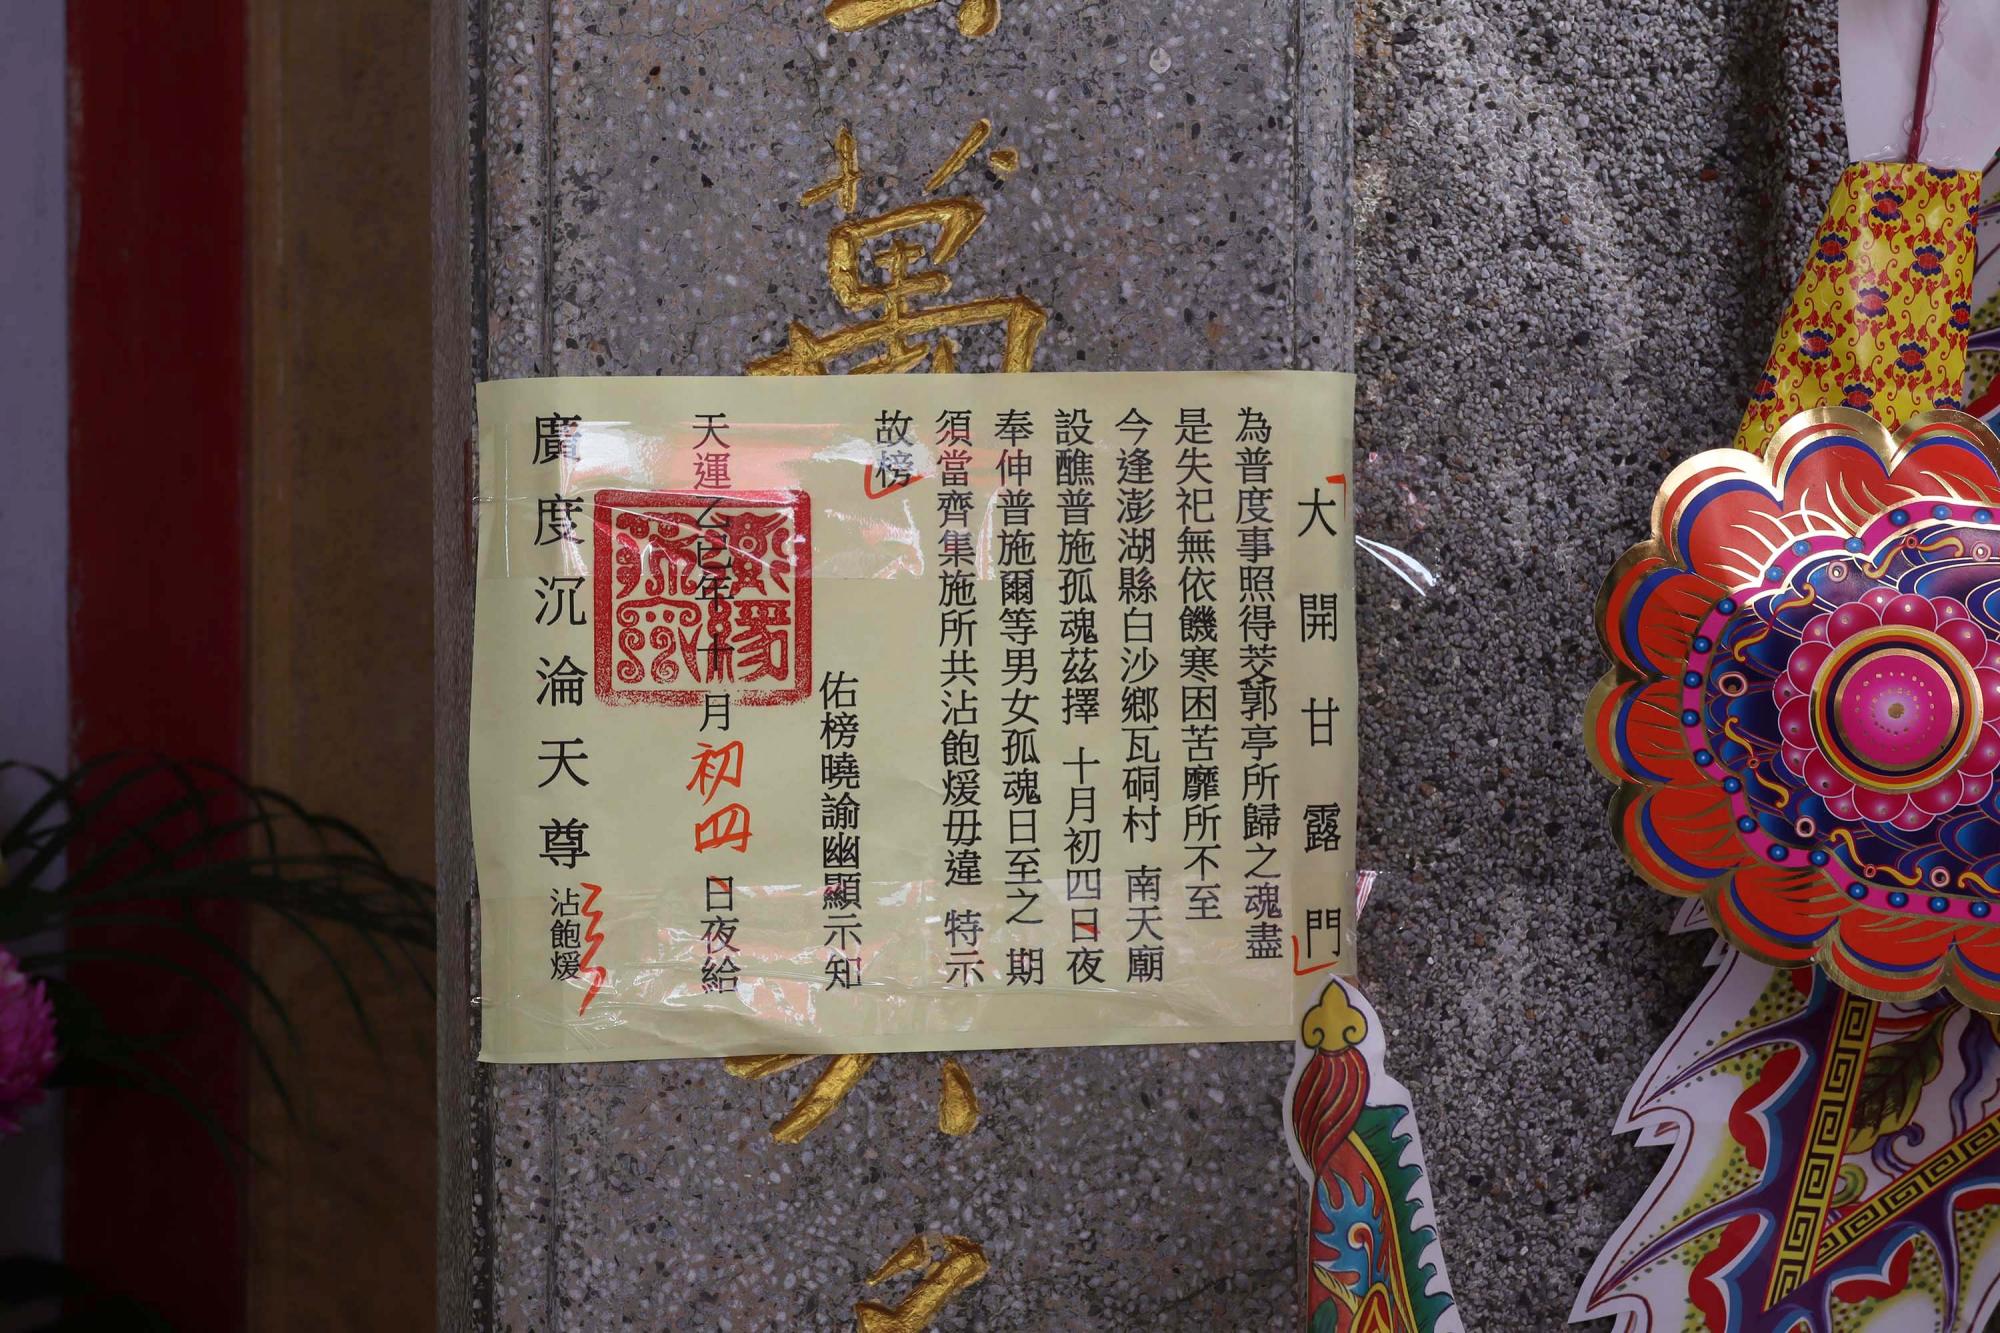 大開甘露門
為普度事照得茭郭亭所歸之魂盡
是失祀無依饑寒困苦靡所不至
今逢澎湖縣白沙鄉瓦硐村 南天廟
設醮普施孤魂茲擇 十月初四日夜
奉仲普施爾等男女孤魂日至之 期
須當齊集施所共沾飽煖毋違 特示
故榜
佑榜曉諭幽顯示知
天運乙巳年十月初四日夜給
廣度沉淪天尊 沾飽煖
萬